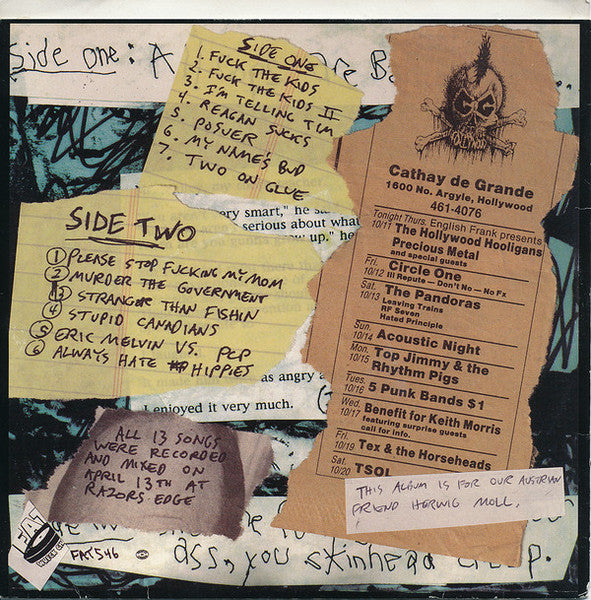 Side one: A
SIDE ONE
1. FUCK THE KIDS
2. FUCK THE KIDS II
3. I'M TELLING TIM
4. REAGAN SUCKS
5. POSUER
6. MY NAME'S BUD
7. TWO ON GLUE
ery smart," he s
serious about what
w up." he
SIDE TWO
1 PLEASE STOP FUCKING MY MOM
2 MURDER THE GOVERNMENT
3 STRANGER THAN FISHIN
4 STUPID CANADIANS
5 ERIC MELVIN VS. PCP
6 ALWAYS HATE HIPPIES
as angry a
I enjoyed it very much.
ALL 13 SONGS
WERE RECORDED
AND MIXED ON
APRIL 13TH AT
RAZORS EDGE
FAT
WRECK CHORDS
FAT546
Cathay de Grande
1600 No. Argyle, Hollywood
461-4076
Tonight Thurs. English Frank presents
10/11 The Hollywood Hooligans
Precious Metal
and special guests
Fri. Circle One
10/12 Ill Repute — Don't No — No Fx
Sat. The Pandoras
10/13 Leaving Trains
RF Seven
Hated Principle
Sun. Acoustic Night
10/14
Mon. Top Jimmy & the
10/15 Rhythm Pigs
Tues. 5 Punk Bands $1
10/16
Wed. Benefit for Keith Morris
10/17 featuring surprise guests
call for info.
Fri. Tex & the Horseheads
10/19
Sat. TSOL
10/20
THIS ALBUM IS FOR OUR AUSTRIAN
FRIEND HERWIG MOLL.
ass, you skinhead